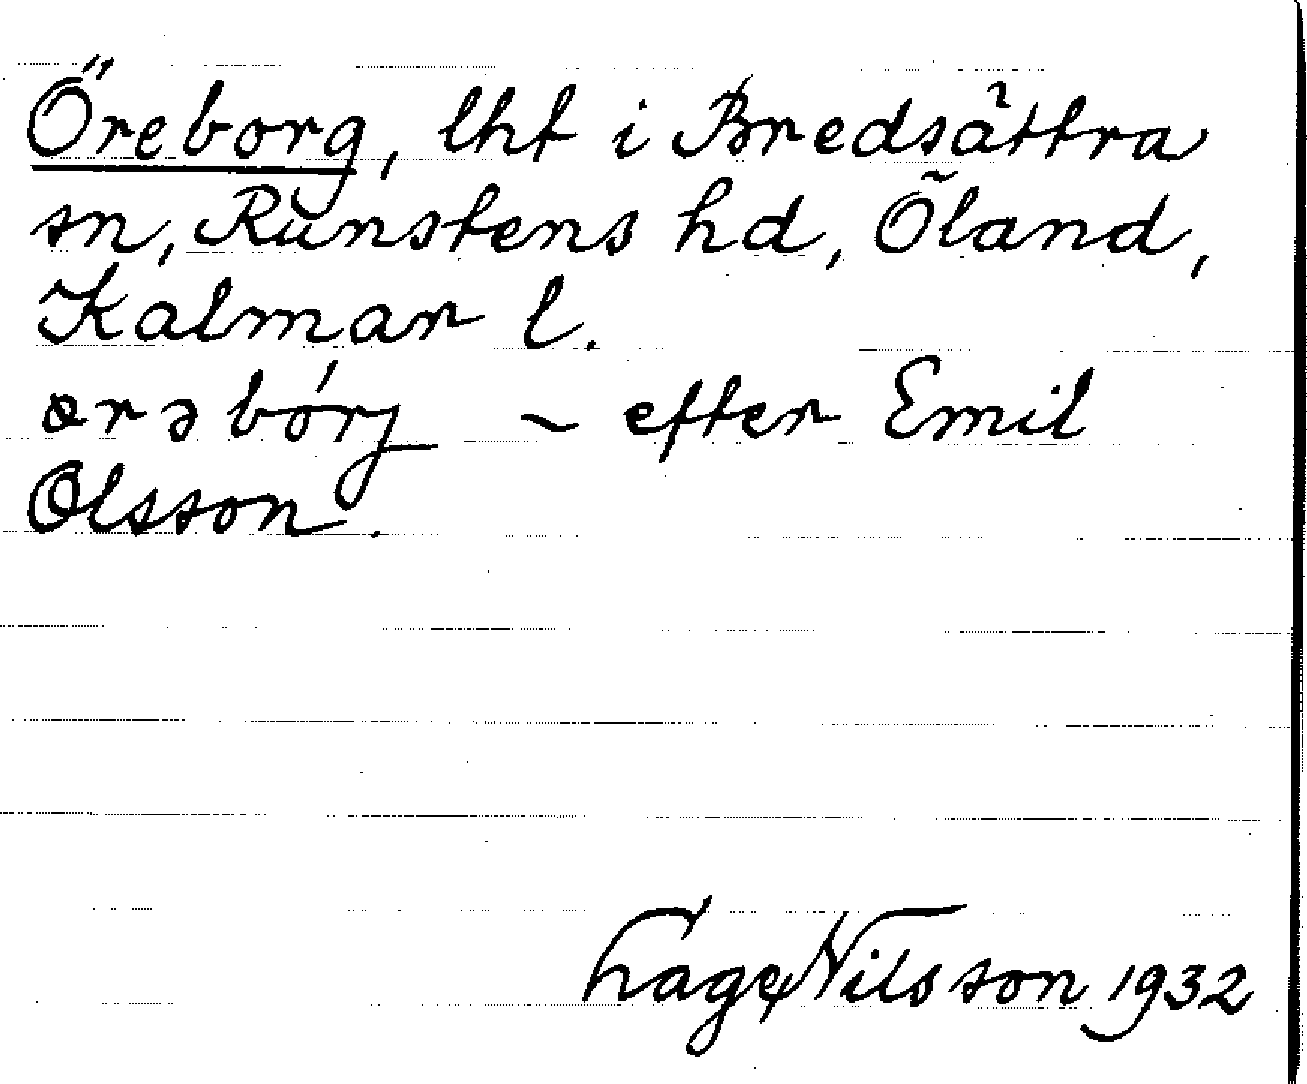 Öreborg, lht i Bredsättra
sn, Runstens hd, Öland,
Kalmar l.
ɷrəbórj ~ efter Emil
Olsson.
Tage Nilsson 1932